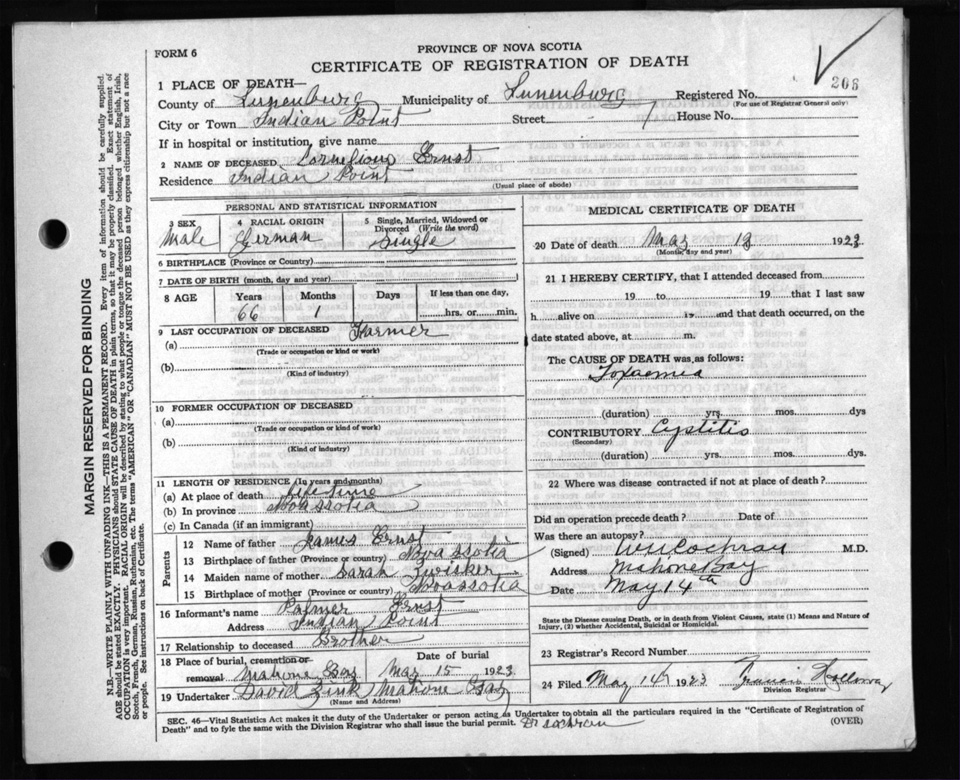 PROVINCE OF NOVA SCOTIA
FORM 6
CERTIFICATE OF REGISTRATION OF DEATH
208
1 PLACE OF DEATH—
County of Lunenburg Municipality of Lunenburg Registered No.
(For use of Registrar General only)
City or Town Indian Point Street House No.
If in hospital or institution, give name
2 NAME OF DECEASED Cornelious Ernst
Residence Indian Point
(Usual place of abode)
PERSONAL AND STATISTICAL INFORMATION
3 SEX 4 RACIAL ORIGIN 5 Single, Married, Widowed or Divorced (Write the word)
Male German Single
6 BIRTHPLACE (Province or Country)
7 DATE OF BIRTH (month, day and year)
8 AGE Years Months Days If less than one day,
66 1 hrs. or min.
9 LAST OCCUPATION OF DECEASED Farmer
(a)
(Trade or occupation or kind or work)
(b)
(Kind of industry)
10 FORMER OCCUPATION OF DECEASED
(a)
(Trade or occupation or kind of work)
(b)
(Kind of industry)
11 LENGTH OF RESIDENCE (In years and months)
(a) At place of death Life time
(b) In province Nova ssotia
(c) In Canada (if an immigrant)
Parents
12 Name of father James Ernst
13 Birthplace of father (Province or country) Nova ssotia
14 Maiden name of mother Sarah Zwisker
15 Birthplace of mother (Province or country) Novassotia
16 Informant's name Palmer Ernst
Address Indian Point
17 Relationship to deceased Brother
18 Place of burial, cremation or removal Date of burial
Mahone Bay May 15 1923
19 Undertaker David Zink Mahone Bay
(Name and Address)
MEDICAL CERTIFICATE OF DEATH
20 Date of death May 13 1923
(Month, day and year)
21 I HEREBY CERTIFY, that I attended deceased from
19 to 19 that I last saw
h alive on 19 and that death occurred, on the
date stated above, at m.
The CAUSE OF DEATH was as follows:
Toxaemia
(duration) yrs. mos. dys
CONTRIBUTORY Cystitis
(Secondary)
(duration) yrs. mos. dys.
22 Where was disease contracted if not at place of death?
Did an operation precede death? Date of
Was there an autopsy?
(Signed) W H Cochran M.D.
Address Mahone Bay
Date May 14th
State the Disease causing Death, or in death from Violent Causes, state (1) Means and Nature of
Injury, (2) whether Accidental, Suicidal or Homicidal.
23 Registrar's Record Number
24 Filed May 14th 1923 Francis Holloway
Division Registrar
SEC. 46—Vital Statistics Act makes it the duty of the Undertaker or person acting as Undertaker to obtain all the particulars required in the "Certificate of Registration of
Death" and to fyle the same with the Division Registrar who shall issue the burial permit. Dr Cochran (OVER)
MARGIN RESERVED FOR BINDING
N.B.—WRITE PLAINLY WITH UNFADING INK—THIS IS A PERMANENT RECORD. Every item of information should be carefully supplied.
AGE should be stated EXACTLY. PHYSICIANS should STATE CAUSE OF DEATH in plain terms, so that it may be properly classified. Exact statement of
OCCUPATION is very important. RACIAL ORIGIN will be described by stating to what people or tongue the deceased person belonged whether English, Irish,
Scotch, French, German, Russian, Ruthenian, etc. The terms "AMERICAN" OR "CANADIAN" MUST NOT BE USED as they express citizenship but not a race
or people. See instructions on back of Certificate.